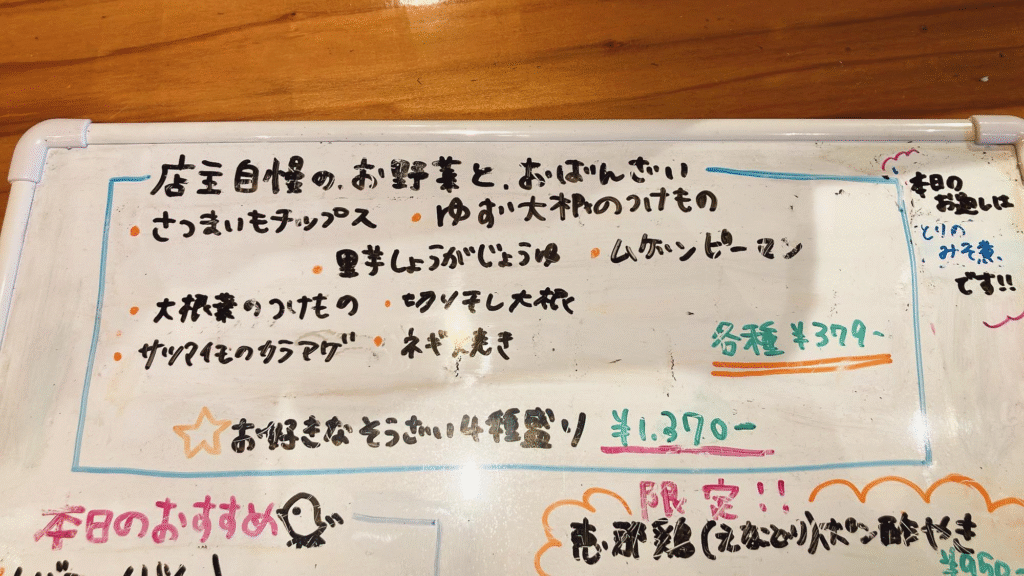 店主自慢の、お野菜と、おばんざい
・さつまいもチップス ・ゆず大根のつけもの
・里芋しょうがじょうゆ ・ムゲンピーマン
・大根葉のつけもの ・切り干し大根
・サツマイモのカラアゲ ・ネギ 焼き
各種 ¥379-
☆お好きなそうざい4種盛り ¥1,370-
本日の
お通しは
とりの
みそ煮、
です!!
本日のおすすめ
限定!!
恵那鶏(えなとり)
ポン酢やき
¥950-